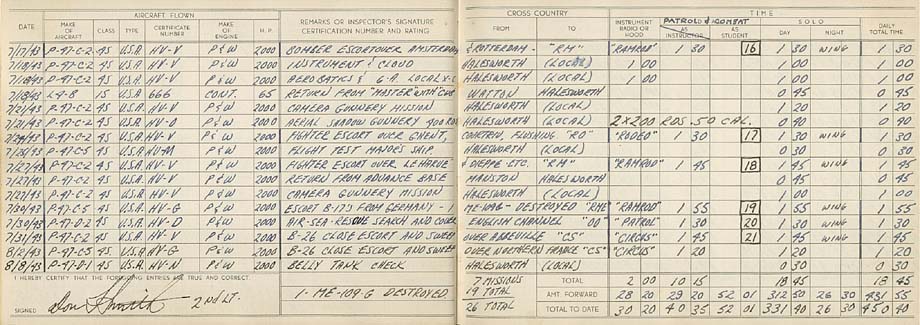 AIRCRAFT FLOWN
CROSS COUNTRY TIME
DATE MAKE OF AIRCRAFT CLASS TYPE CERTIFICATE NUMBER MAKE OF ENGINE H.P. REMARKS OR INSPECTOR'S SIGNATURE CERTIFICATION NUMBER AND RATING FROM TO INSTRUMENT RADIO OR HOOD PATROL & COMBAT AS INSTRUCTOR AS STUDENT SOLO DAY NIGHT DAILY TOTAL TIME
7/17/43 P-47-C-2 45 U.S.A. HV-V P & W 2000 BOMBER ESCORT OVER AMSTERDAM & ROTTERDAM - "RM" "RAMROD" 1 30 16 1 30 WING 1 30
7/18/43 P-47-C-2 45 U.S.A. HV-V P & W 2000 INSTRUMENT & CLOUD HALESWORTH (LOCAL) 1 00 1 00 1 00
7/18/43 P-47-C-2 45 U.S.A. HV-V P & W 2000 AEROBATICS & HALESWORTH (LOCAL) 1 00 1 00 1 00
7/18/43 L-4-B 15 U.S.A. 666 CONT. 65 RETURN FROM "MASTER" WATTON HALESWORTH 0 45 0 45
7/21/43 P-47-C-2 45 U.S.A. HV-V P & W 2000 CAMERA GUNNERY MISSION HALESWORTH (LOCAL) 1 20 1 20
7/21/43 P-47-C-2 45 U.S.A. P & W 2000 AERIAL SHADOW GUNNERY 400 RDS HALESWORTH (LOCAL) 2X200 RDS .50 CAL. 0 40 0 40
7/24/43 P-47-C-2 45 U.S.A. HV-V P & W 2000 FIGHTER ESCORT OVER GHENT, FLUSHING "RO" "RODEO" 1 30 17 1 30 WING 1 30
7/25/43 P-47-C-5 45 U.S.A. HV-M P & W 2000 FLIGHT TEST MAJORS SHIP HALESWORTH (LOCAL) 0 30 0 30
7/27/43 P-47-C-2 45 U.S.A. HV-V P & W 2000 FIGHTER ESCORT OVER LE HAVRE & DIEPPE ETC. "RM" "RAMROD" 1 45 18 1 45 WING 1 45
7/27/43 P-47-C-2 45 U.S.A. HV-V P & W 2000 RETURN FROM ADVANCE BASE MANSTON HALESWORTH 0 45 0 45
7/27/43 P-47-C-2 45 U.S.A. HV-V P & W 2000 CAMERA GUNNERY MISSION HALESWORTH (LOCAL) 1 00 1 00
7/30/43 P-47-C-5 45 U.S.A. HV-G P & W 2000 ESCORT B-17'S FROM GERMANY - 1 ME-109G - DESTROYED "RM" "RAMROD" 1 55 19 1 55 WING 1 55
7/30/43 P-47-D-2 45 U.S.A. HV-D P & W 2000 AIR-SEA-RESCUE SEARCH AND COVER ENGLISH CHANNEL "OO" "PATROL" 1 30 20 1 30 WING 1 30
7/31/43 P-47-C-2 45 U.S.A. HV-V P & W 2000 B-26 CLOSE ESCORT AND SWEEP OVER ABBEVILLE "CS" "CIRCUS" 1 45 21 1 45 WING 1 45
8/2/43 P-47-C-5 45 U.S.A. HV-G P & W 2000 B-26 CLOSE ESCORT AND SWEEP OVER NORTHERN FRANCE "CS" "CIRCUS" 1 20 1 20 1 20
8/8/43 P-47-D-1 45 U.S.A. HV-N P & W 2000 BELLY TANK CHECK HALESWORTH (LOCAL) 0 30 0 30
I HEREBY CERTIFY THAT THE FOREGOING ENTRIES ARE TRUE AND CORRECT.
7 MISSIONS TOTAL 2 00 10 15 18 45 18 45
SIGNED Don Smith 2nd LT. 1- ME-109-G DESTROYED
19 TOTAL AMT FORWARD 28 20 29 20 52 01 312 50 26 30 431 55
26 TOTAL TOTAL TO DATE 30 20 40 35 52 01 331 40 26 30 450 40